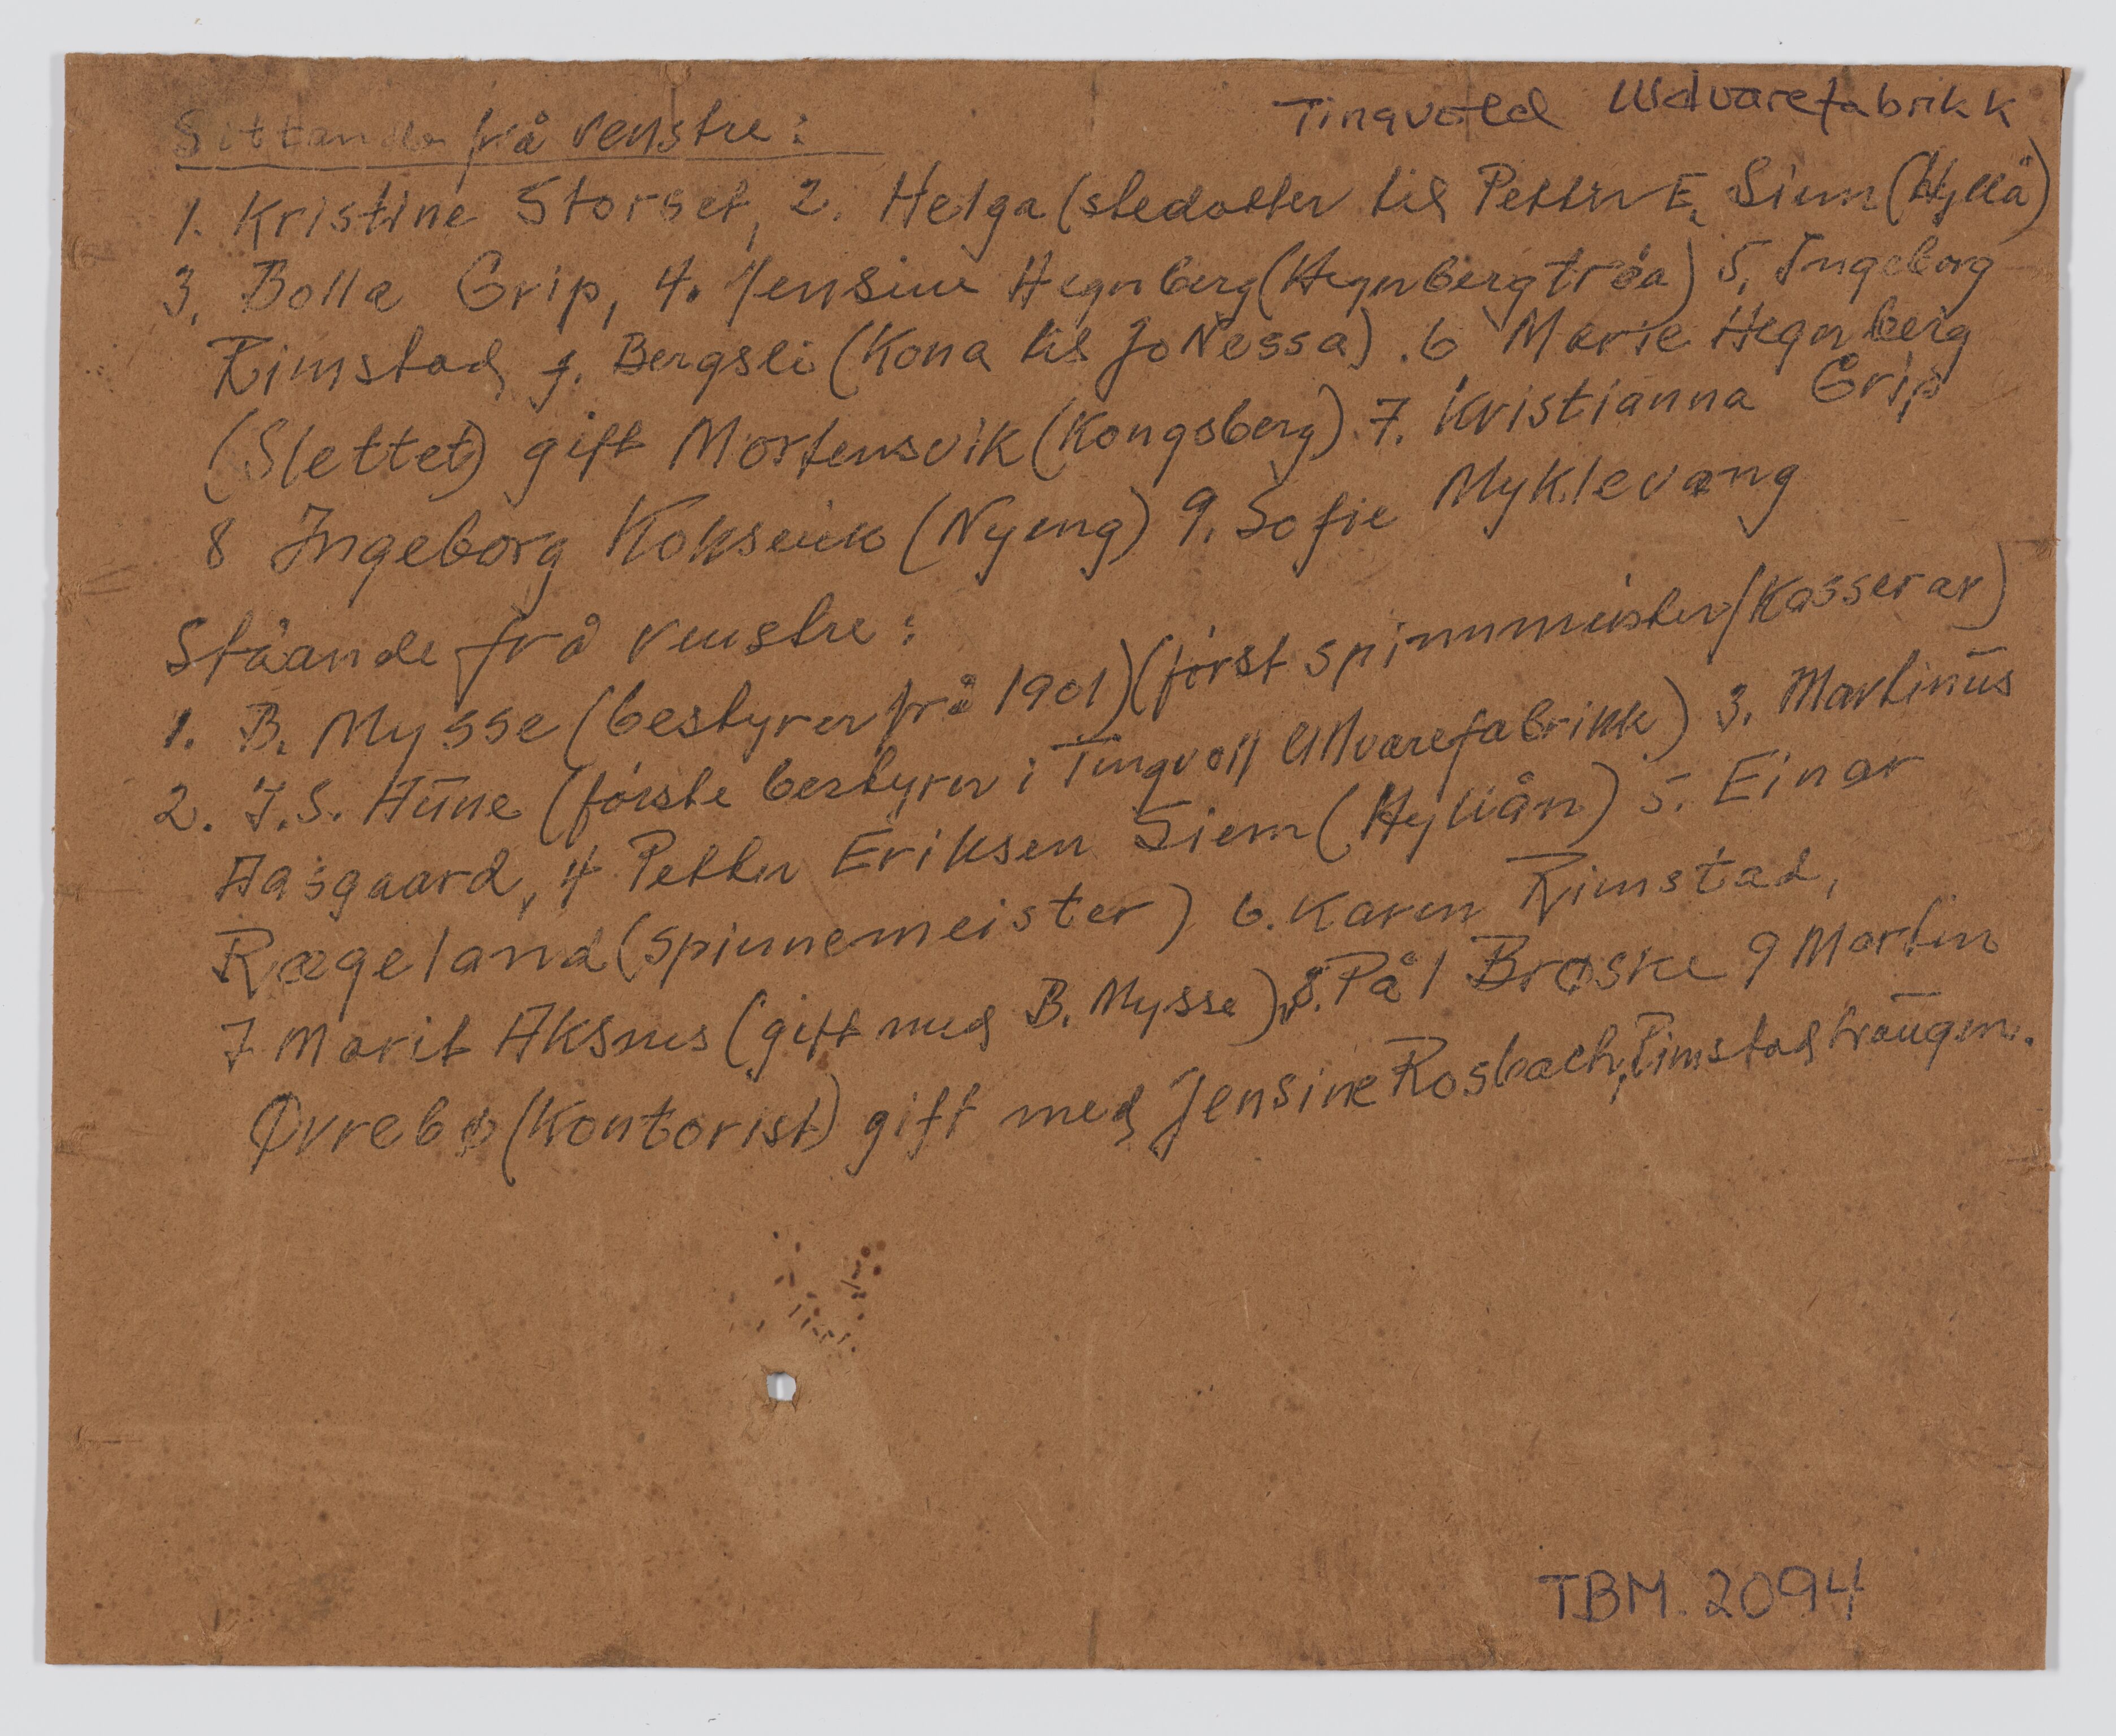 Tingvold Uldvarefabrikk
Sittande frå venstre:
1. Kristine Storset, 2. Helga (stedotter til Petter E. Siem (Hyllå)
3, Bolla Grip, 4. Jensine Hegnberg (Hegnbergtrøa) 5, Ingeborg
Rimstad f. Bergsli (Kona til Jo Nessa). 6 Marie Hegnberg
(Slettet) gift Mortensvik (Kongsberg) 7. Kristianna Grip
8 Ingeborg Koksvik (Nyeng) 9. Sofie Myklevang
Ståande frå venstre:
1. B. Mysse (bestyrer frå 1901) (først spinnmeister/Kasserar)
2. J.S. Hune (første bestyrer i Tingvoll Ullvarefabrikk) 3. Martinus
Aasgaard, 4 Petter Eriksen Siem (Hyllån) 5. Einar
Rægeland (spinnemeister) 6. Karen Rimstad,
7 Marit Aksnes (gift med B. Mysse), 8. Pål Broske 9 Martin
Øvrebø (Kontorist) gift med Jensine Rosbach, Rimstadhaugen.
TBM. 2094